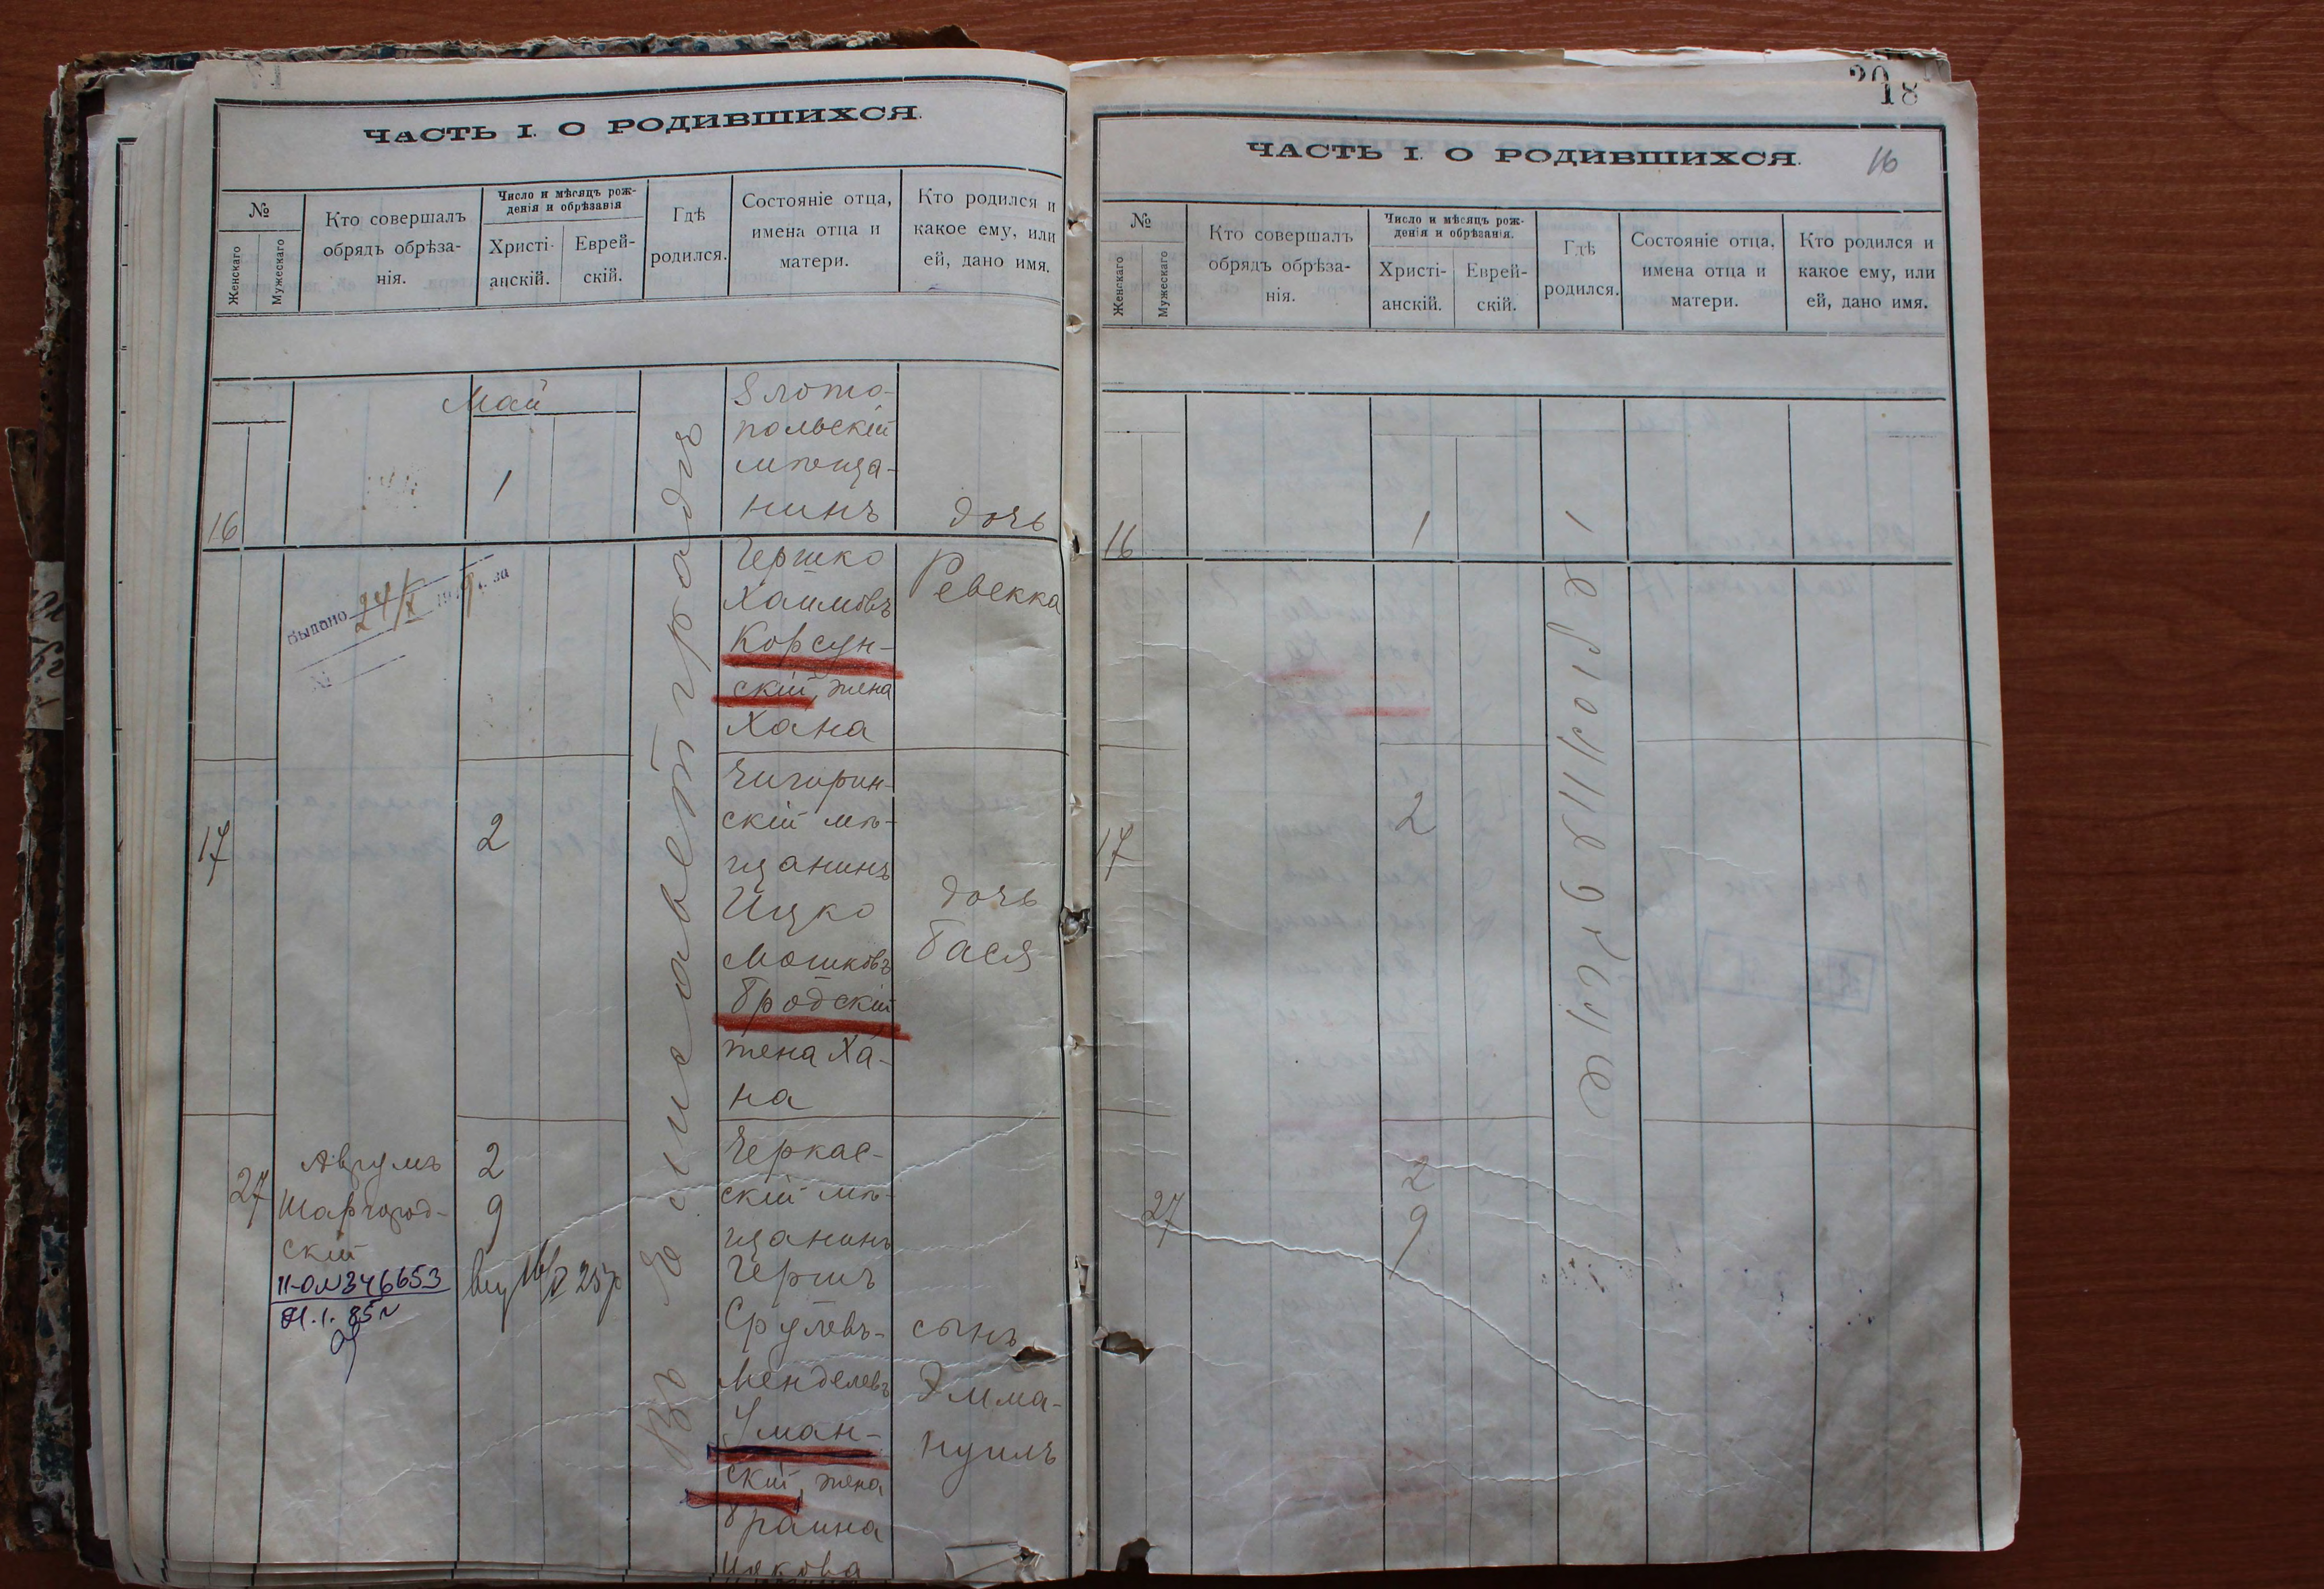 ЧАСТЬ I. О РОДИВШИХСЯ.
№
Женскаго
Мужескаго
Кто совершалъ
обрядъ обрѣза-
нія.
Число и мѣсяцъ рож-
денія и обрѣзанія
Христі-
анскій.
Еврей-
скій.
Гдѣ
родился.
Состояніе отца,
имена отца и
матери.
Кто родился и
какое ему, или
ей, дано имя.
Май
Въ Елисаветградѣ
16
1
Злото-
польскій
мѣща-
нинъ
Гершко
Хаимовъ
Корсун-
скій, жена
Хана
дочь
Ревекка
Выдано 24/X 19 9 г. за
№
17
2
Чигирин-
скій мѣ-
щанинъ
Ицко
Мошковъ
Бродскій
жена Ха-
на
дочь
Бася
27
Аврумъ
Шаргород-
скій
II-ОЛ 346653
21.1.85г
2
9
16/V 25г
Черкас-
скій мѣ-
щанинъ
Герш
Срулевъ-
Менделевъ
Уман-
скій, жена
Браина
Иякова
сынъ
Эмма-
нуилъ
20
18
16
ЧАСТЬ I. О РОДИВШИХСЯ.
№
Женскаго
Мужескаго
Кто совершалъ
обрядъ обрѣза-
нія.
Число и мѣсяцъ рож-
денія и обрѣзанія.
Христі-
анскій.
Еврей-
скій.
Гдѣ
родился.
Состояніе отца,
имена отца и
матери.
Кто родился и
какое ему, или
ей, дано имя.
16
1
17
2
27
2
9